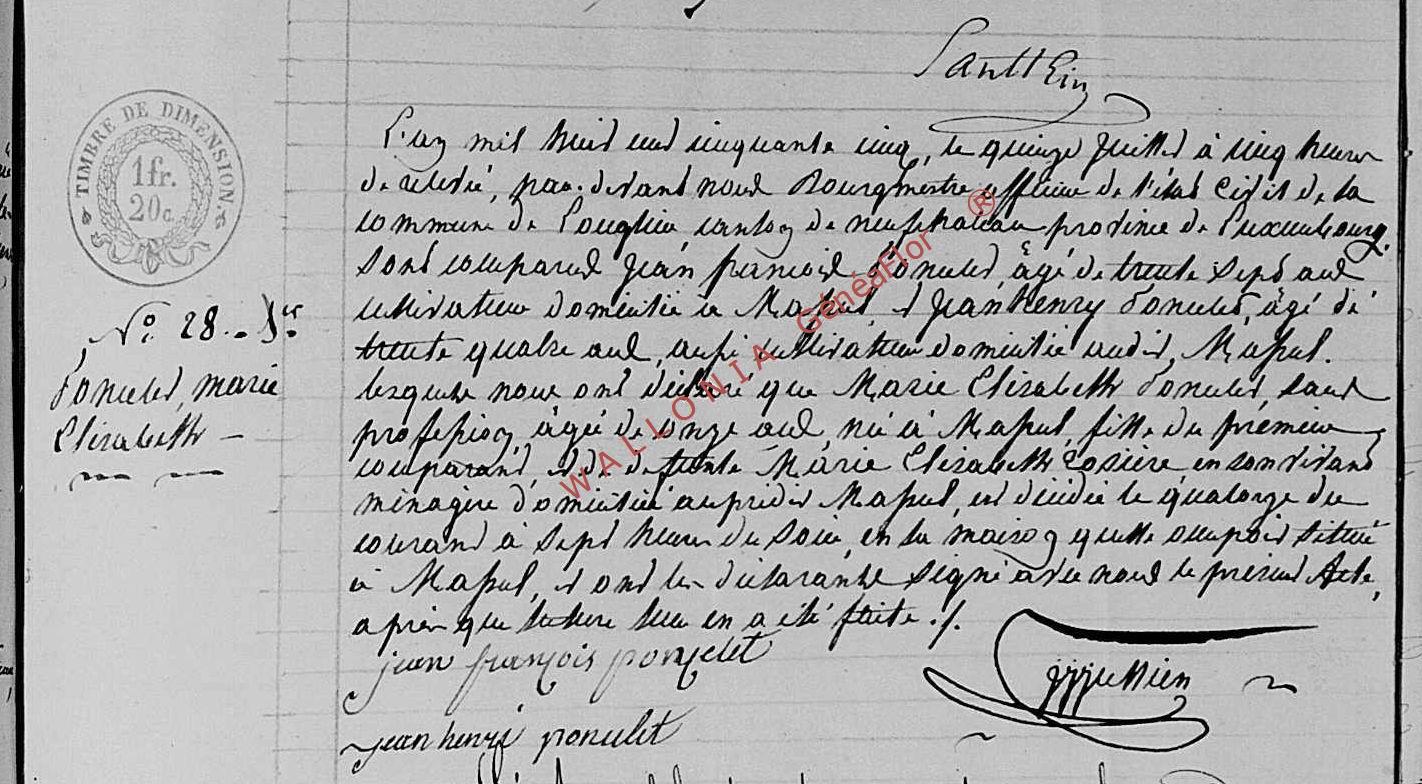 TIMBRE DE DIMENSION.
1fr.
20c.
L'an mil huit cent cinquante cinq, le quinze Juillet à cinq heures
de relevée, par-devant nous Bourgmestre officier de l'état Civil de la
commune de Louglier canton de neufchateau province de Luxembourg.
Sont comparus Jean francois Poncelet, âgé de trente sept ans
cultivateur domicilié à Massul, et Jean henry Poncelet, âgé de
trente quatre ans, aussi cultivateur domicilié audit Massul.
lesquels nous ont déclaré que Marie Elizabeth Poncelet, sans
profession, âgée de onze ans, née à Massul, fille du premier
comparant, et de defunte Marie Elizabeth Rosière en son vivant
ménagère domiciliée au prédit Massul, est décédée le quatorze du
courant à sept heures du soir, en la maison qu'elle occupait située
à Massul, et ont les déclarants signé avec nous le présent Acte,
après que lecture leur en a été faite ./.
No. 28.
Poncelet, marie
Elizabeth —
jean françois poncelet
jean henri poncelet
WALLONIA GénéaFlor ®